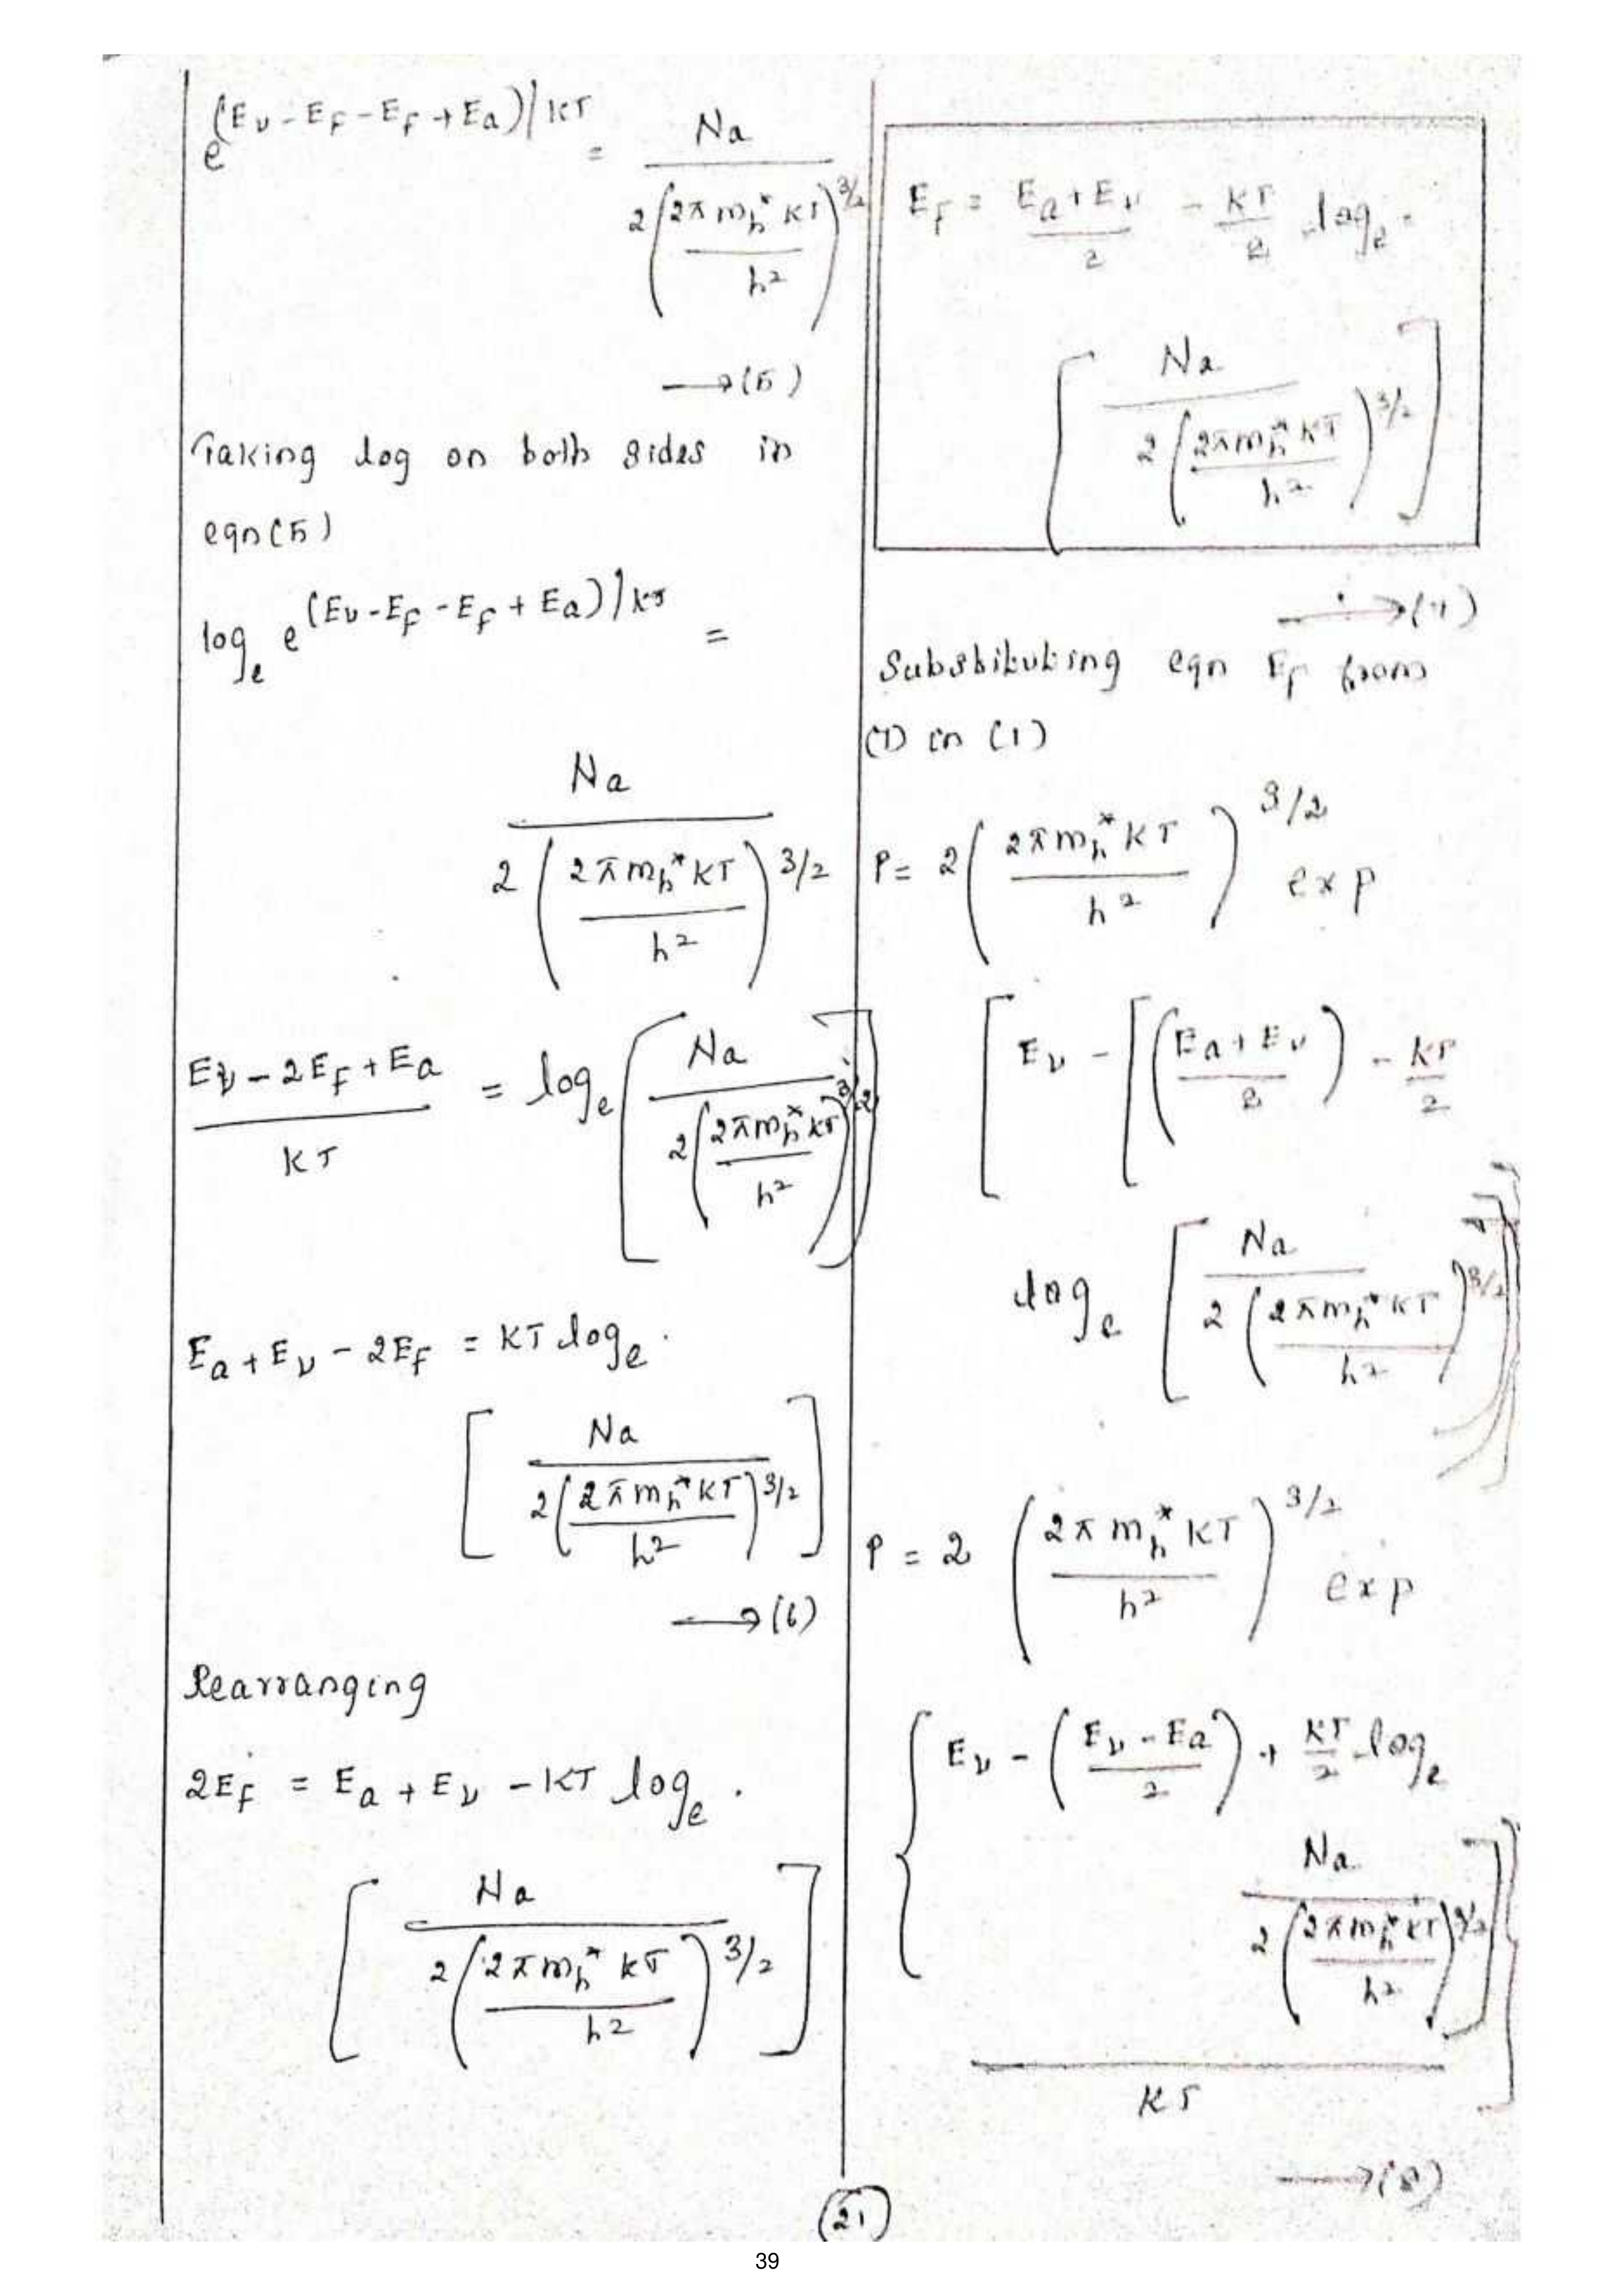 e^(Eν - E_F - E_F + Ea)/KT = Na / 2(2π m_h* KT / h²)^3/2
→(5)
Taking log on both sides in
eqn(5)
log_e e^(Eν - E_F - E_F + Ea)/KT =
Na / 2(2π m_h* KT / h²)^3/2
Eν - 2E_F + Ea / KT = log_e [Na / 2(2π m_h* KT / h²)^3/2]
Ea + Eν - 2E_F = KT log_e
[Na / 2(2π m_h* KT / h²)^3/2]
→(6)
Rearranging
2E_F = Ea + Eν - KT log_e
[Na / 2(2π m_h* KT / h²)^3/2]
E_F = Ea + Eν / 2 - KT / 2 log_e
[Na / 2(2π m_h* KT / h²)^3/2]
→(7)
Substituting eqn E_F from
(7) in (1)
P = 2(2π m_h* KT / h²)^3/2 exp
[Eν - [(Ea + Eν / 2) - KT / 2
log_e [Na / 2(2π m_h* KT / h²)^3/2]]]
P = 2 (2π m_h* KT / h²)^3/2 exp
{Eν - (Eν - Ea / 2) + KT / 2 log_e
Na / 2(2π m_h* KT / h²)^3/2]
/ KT}
→(8)
21
39